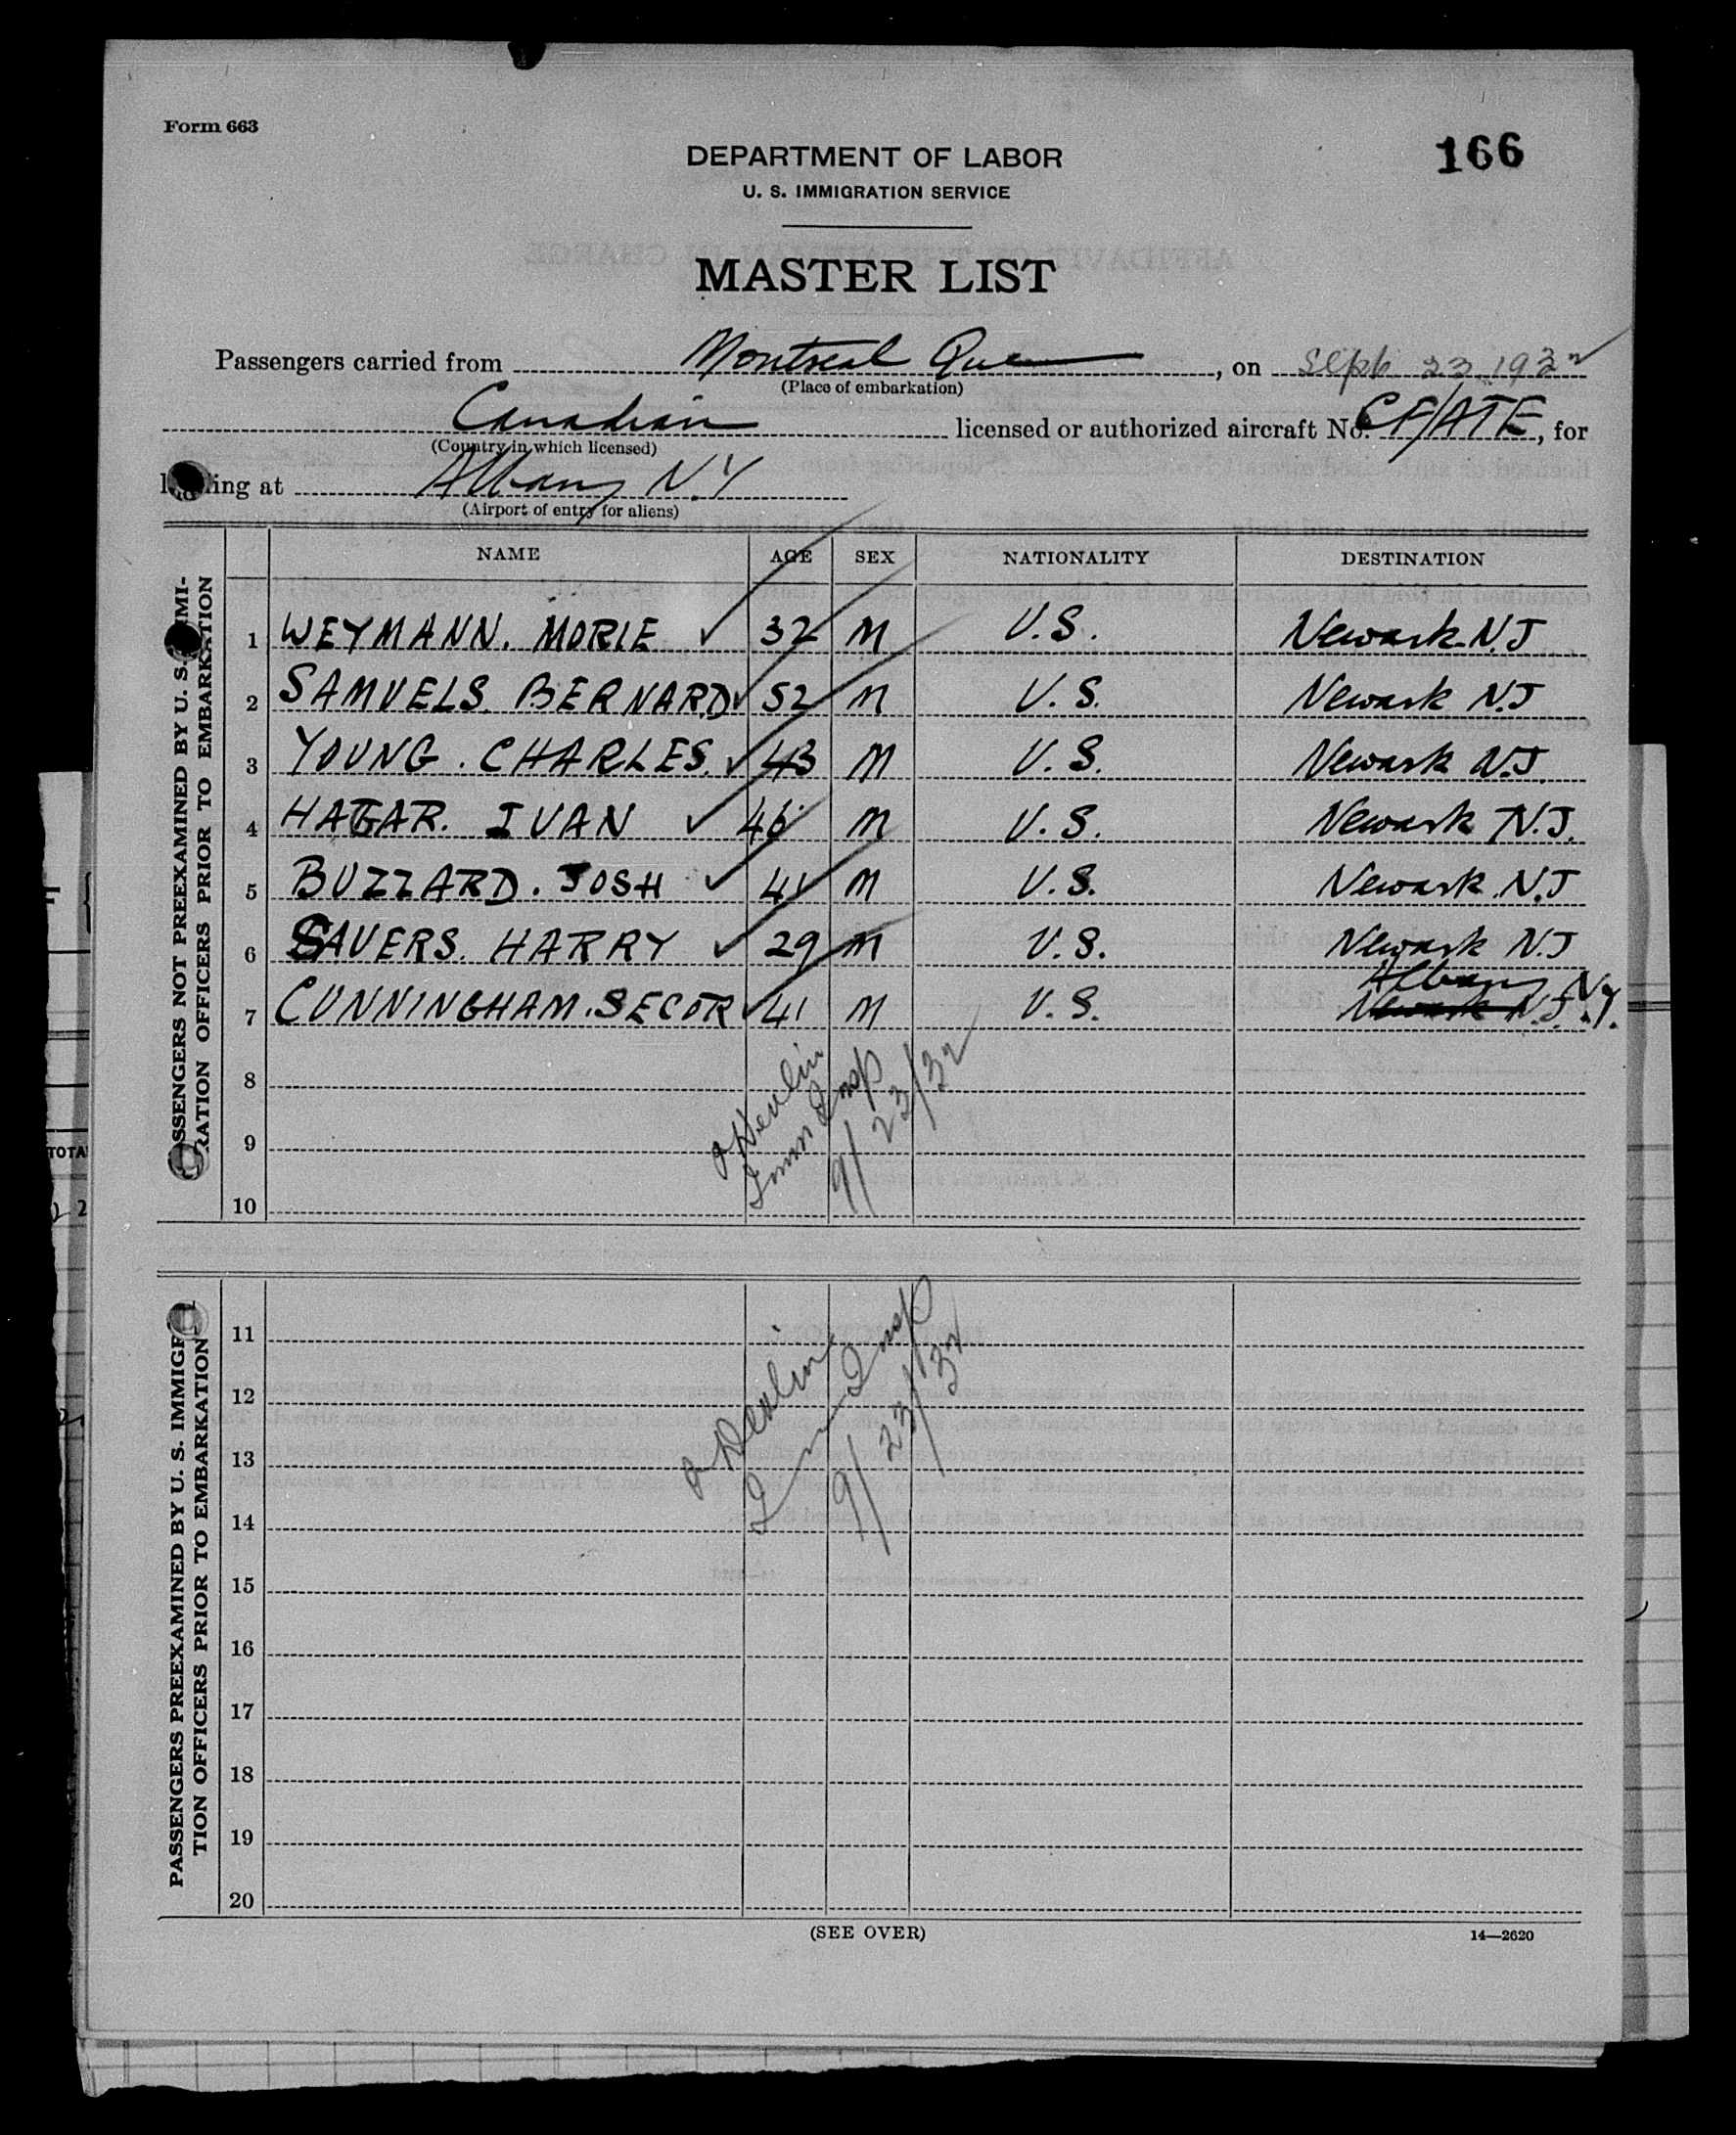 Form 663
166
DEPARTMENT OF LABOR
U. S. IMMIGRATION SERVICE
MASTER LIST
Passengers carried from Montreal Que, on Sept 23, 1932
(Place of embarkation)
Canadian licensed or authorized aircraft No. CF/ATE, for
(Country in which licensed)
landing at Albany N.Y
(Airport of entry for aliens)
PASSENGERS NOT PREEXAMINED BY U. S. IMMI-
GRATION OFFICERS PRIOR TO EMBARKATION
NAME AGE SEX NATIONALITY DESTINATION
1 WEYMANN. MORIE ✓ 32 M U.S. Newark N.J
2 SAMUELS. BERNARD ✓ 52 M U.S. Newark N.J
3 YOUNG. CHARLES. ✓ 43 M U.S. Newark N.J.
4 HAGAR. IVAN ✓ 46 M U.S. Newark N.J.
5 BUZZARD. JOSH ✓ 41 M U.S. Newark N.J
6 SAVERS. HARRY ✓ 29 M U.S. Newark N.J
Albany N.Y.
7 CUNNINGHAM. SECOR ✓ 41 M U.S. Newark N.J.
8
9
10
Devlin
Imm Insp
9/23/32
PASSENGERS PREEXAMINED BY U. S. IMMIGRA-
TION OFFICERS PRIOR TO EMBARKATION
11
12
13
14
15
16
17
18
19
20
Devlin
Imm Insp
9/23/32
(SEE OVER)
14—2620